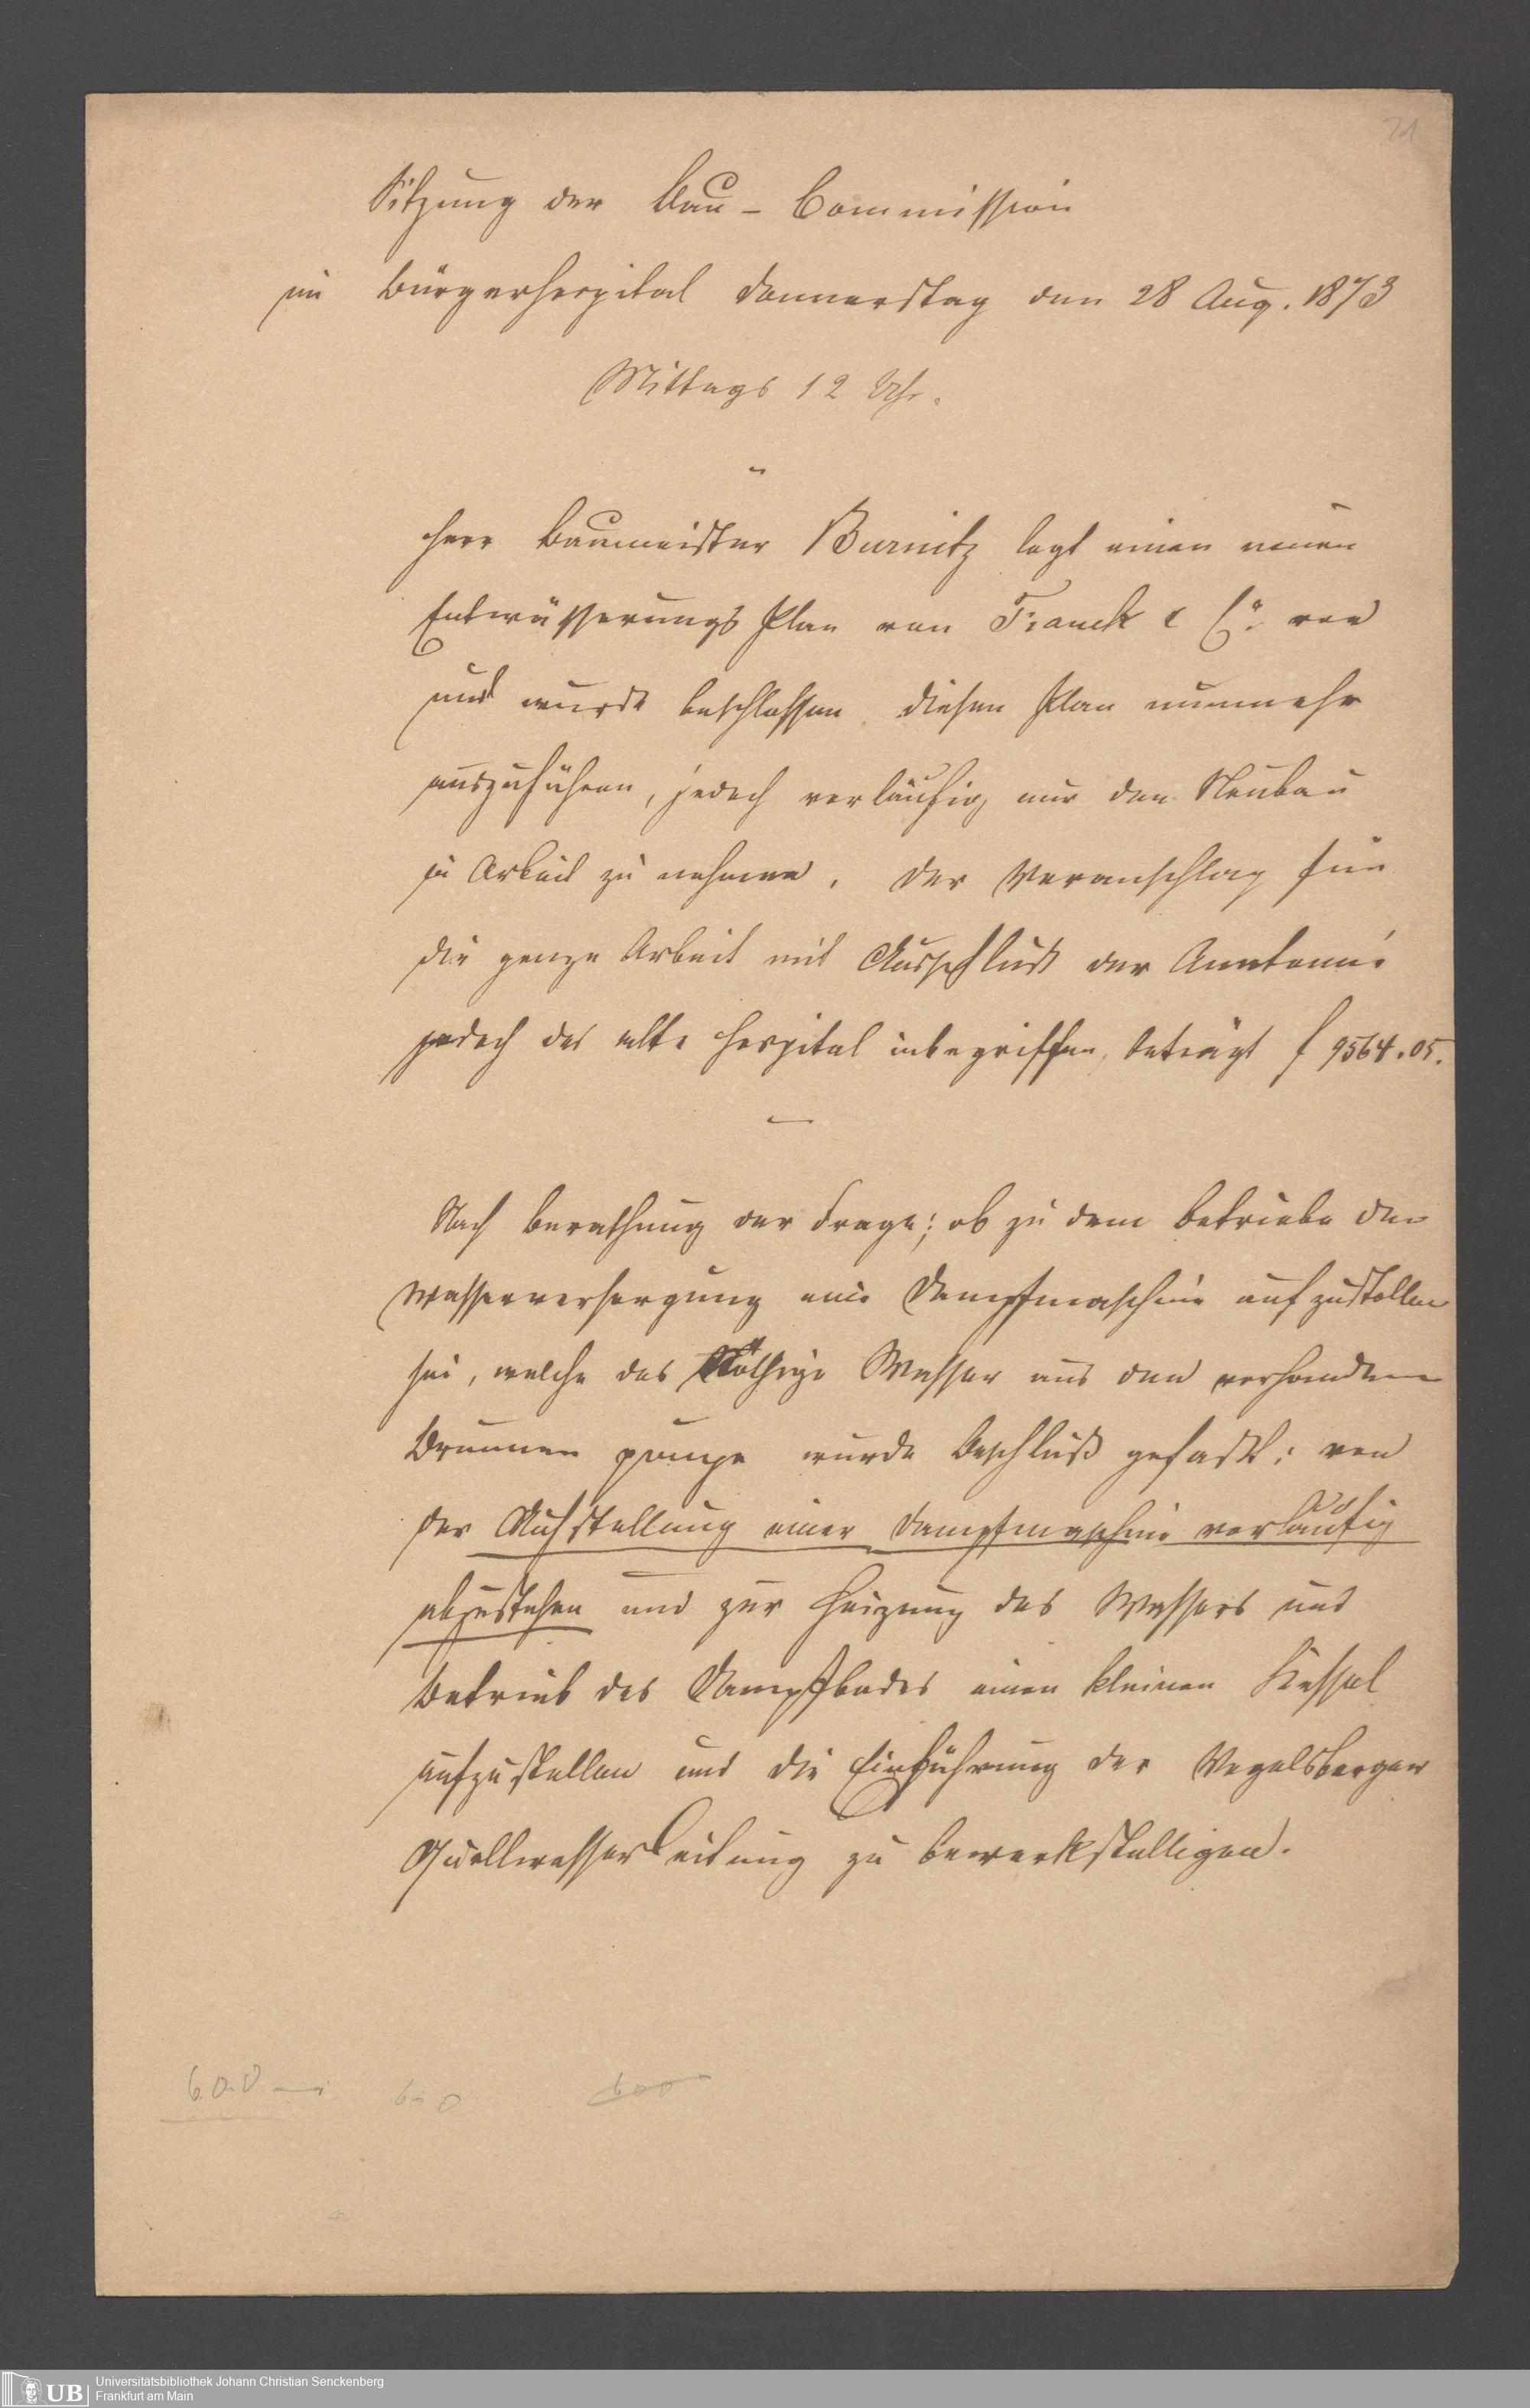 21
Sitzung der Bau-Commission
im Bürgerhospital Donnerstag den 28 Aug. 1873
Mittags 12 Uhr.
Herr Baumeister Burnitz legt einen neuen
Entwässerungs Plan von Franck & Co. vor
und wurde beschlossen diesen Plan nunmehr
auszuführen, jedoch vorläufig nur den Neubau
in Arbeit zu nehmen. Der Voranschlag für
die ganze Arbeit mit Ausschluß der Anatomie
jedoch das alte Hospital inbegriffen, beträgt f 9564.05.
Nach Berathung der Frage; ob zu dem Betriebe der
Wasserversorgung eine Dampfmaschine aufzustellen
sei, welche das Nöthige Wasser aus den vorhandenen
Brunnen pumpe wurde Beschluß gefaßt: von
der Aufstellung einer Dampfmaschine vorläufig
abzustehen und zur Heizung des Wassers und
Betrieb des Dampfbades einen kleinen Kessel
aufzustellen und die Einführung der Vogelsberger
Quellwasserleitung zu bewerkstelligen.
600
600
600
UB Universitätsbibliothek Johann Christian Senckenberg
Frankfurt am Main